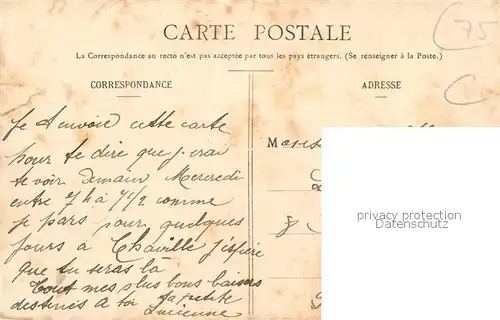 CARTE POSTALE
La Correspondance au recto n'est pas acceptée par tous les pays étrangers. (Se renseigner à la Poste.)
CORRESPONDANCE
ADRESSE
75
C
Je t'envoie cette carte
pour te dire que j'irai
te voir Demain Mercredi
entre 7h à 7h1/2 comme
je pars pour quelques
jours à Chaville j'espère
que tu seras là
Tout mes plus bons baisers
destinés à toi ta petite
Lucienne
8
privacy protection
Datenschutz